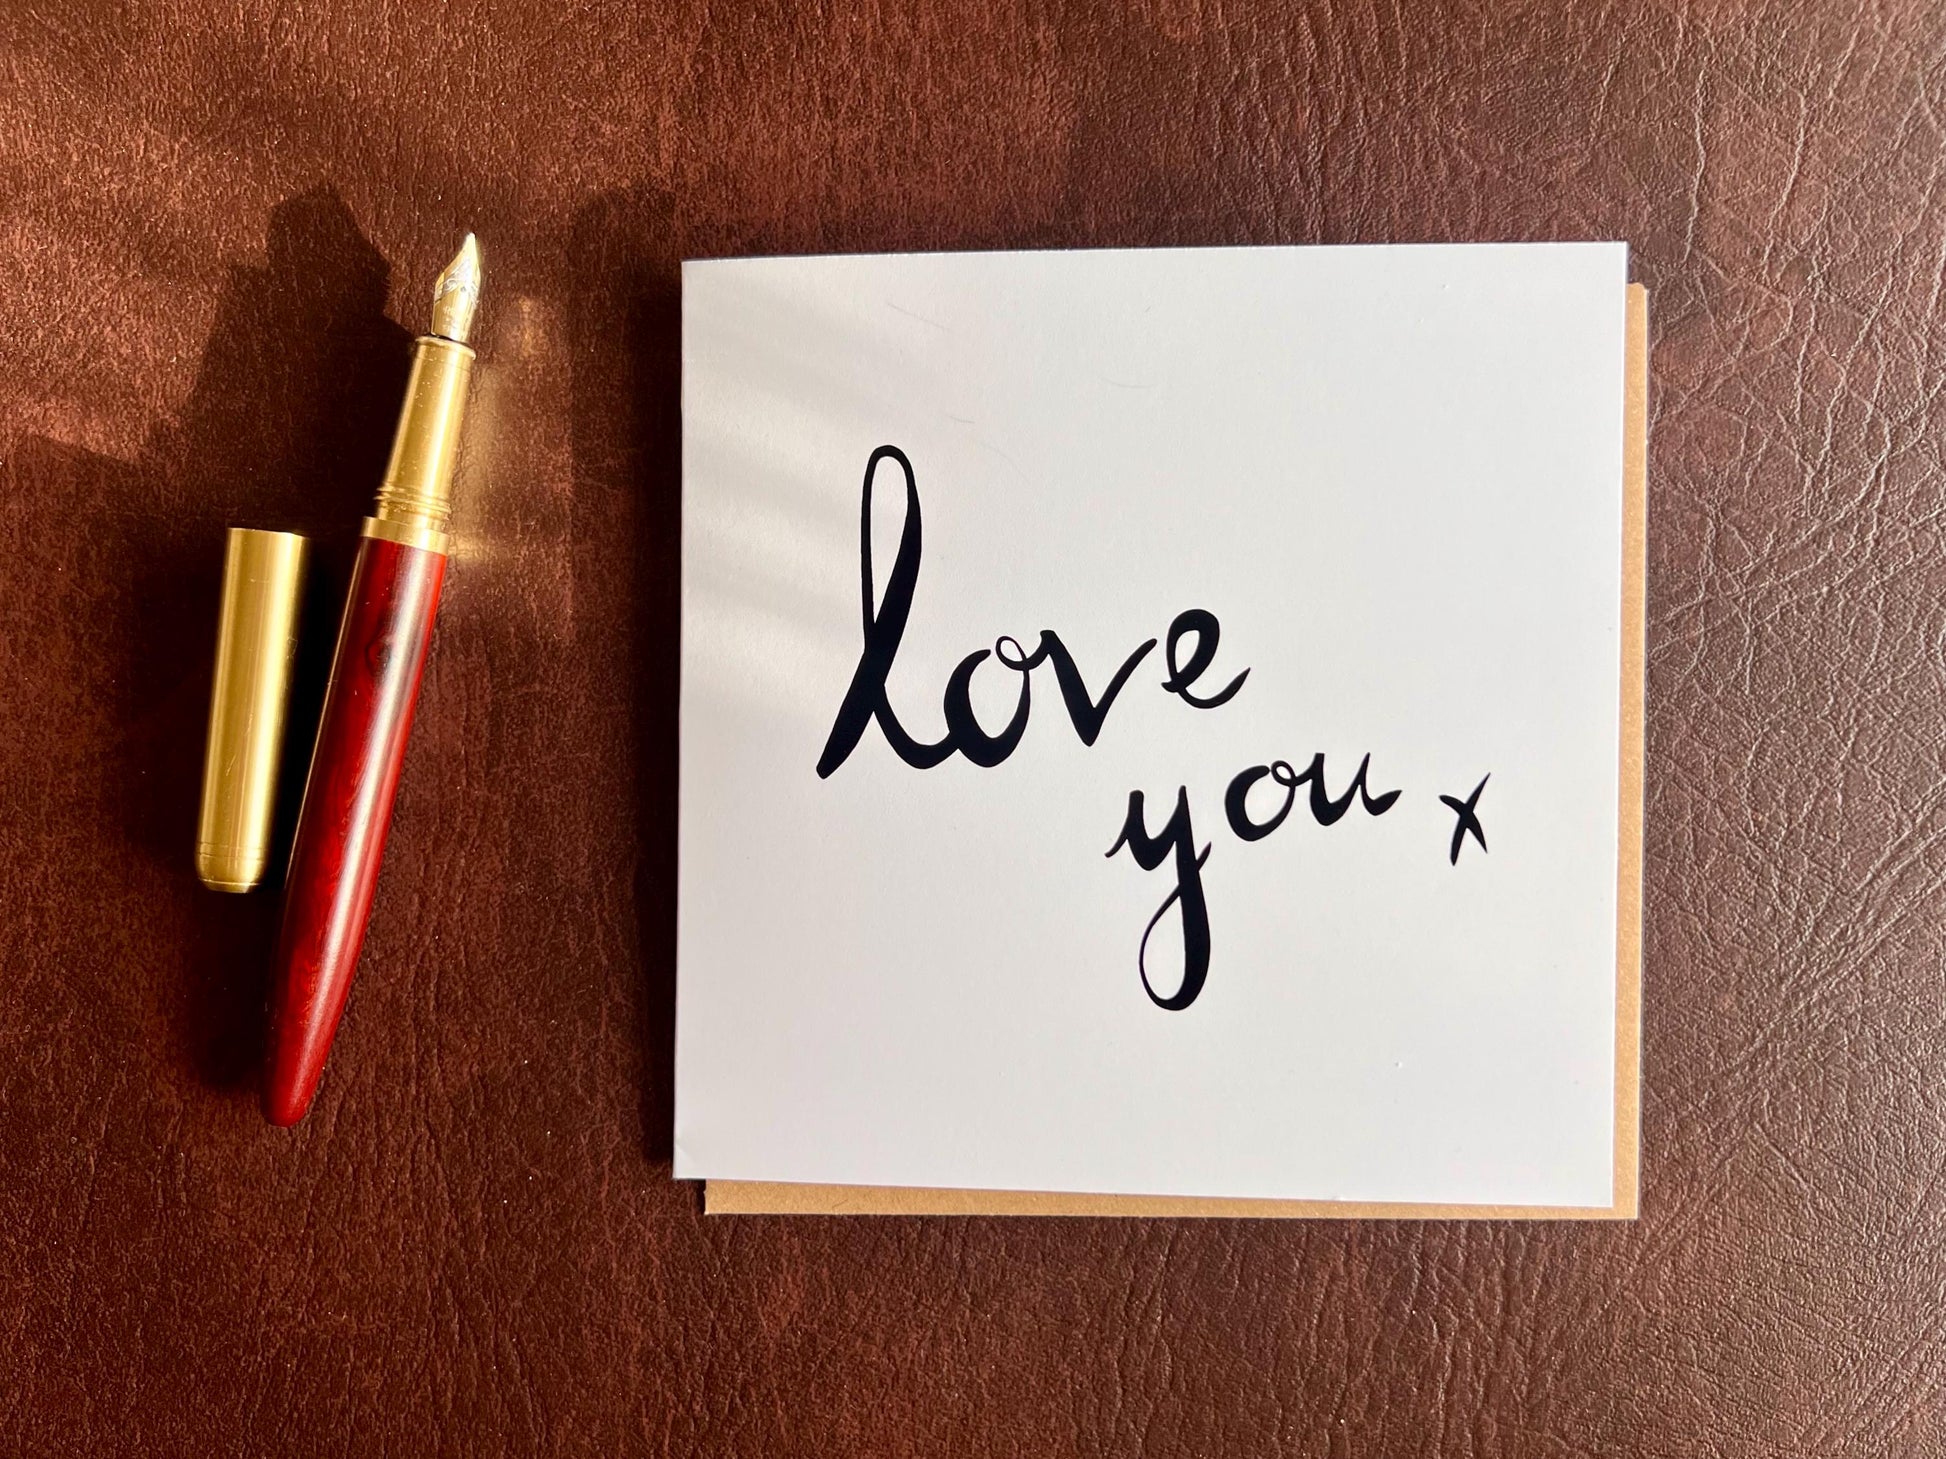 love
you x